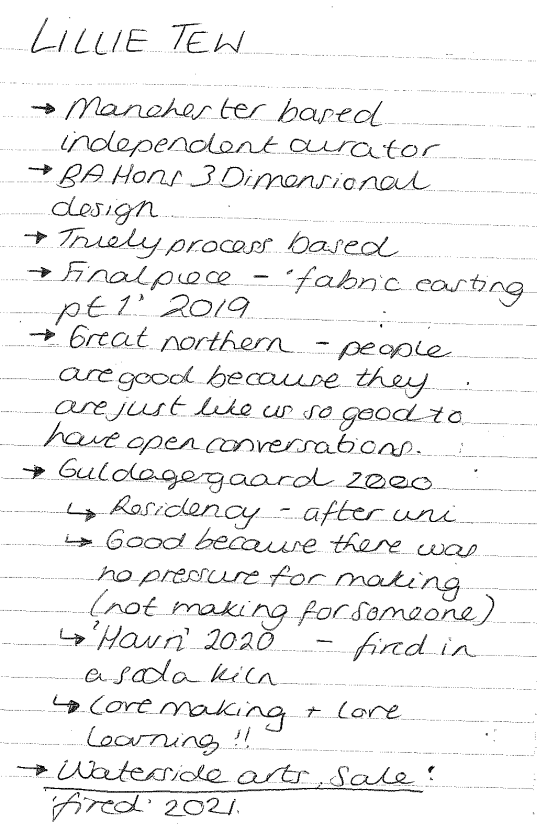 LILLIE TEW
→ Manchester based
independent curator
→ BA Hons 3 Dimensional
design
→ Truely process based
→ Final piece - 'fabric casting
pt 1' 2019
→ Great northern - people
are good because they
are just like us so good to
have open conversations.
→ Guldagergaard 2020
↳ Residency - after uni
↳ Good because there was
no pressure for making
(not making for someone)
↳ 'Havn' 2020 - fired in
a soda kiln
↳ Love making + love
learning!!
→ Waterside arts, Sale:
'fired' 2021.